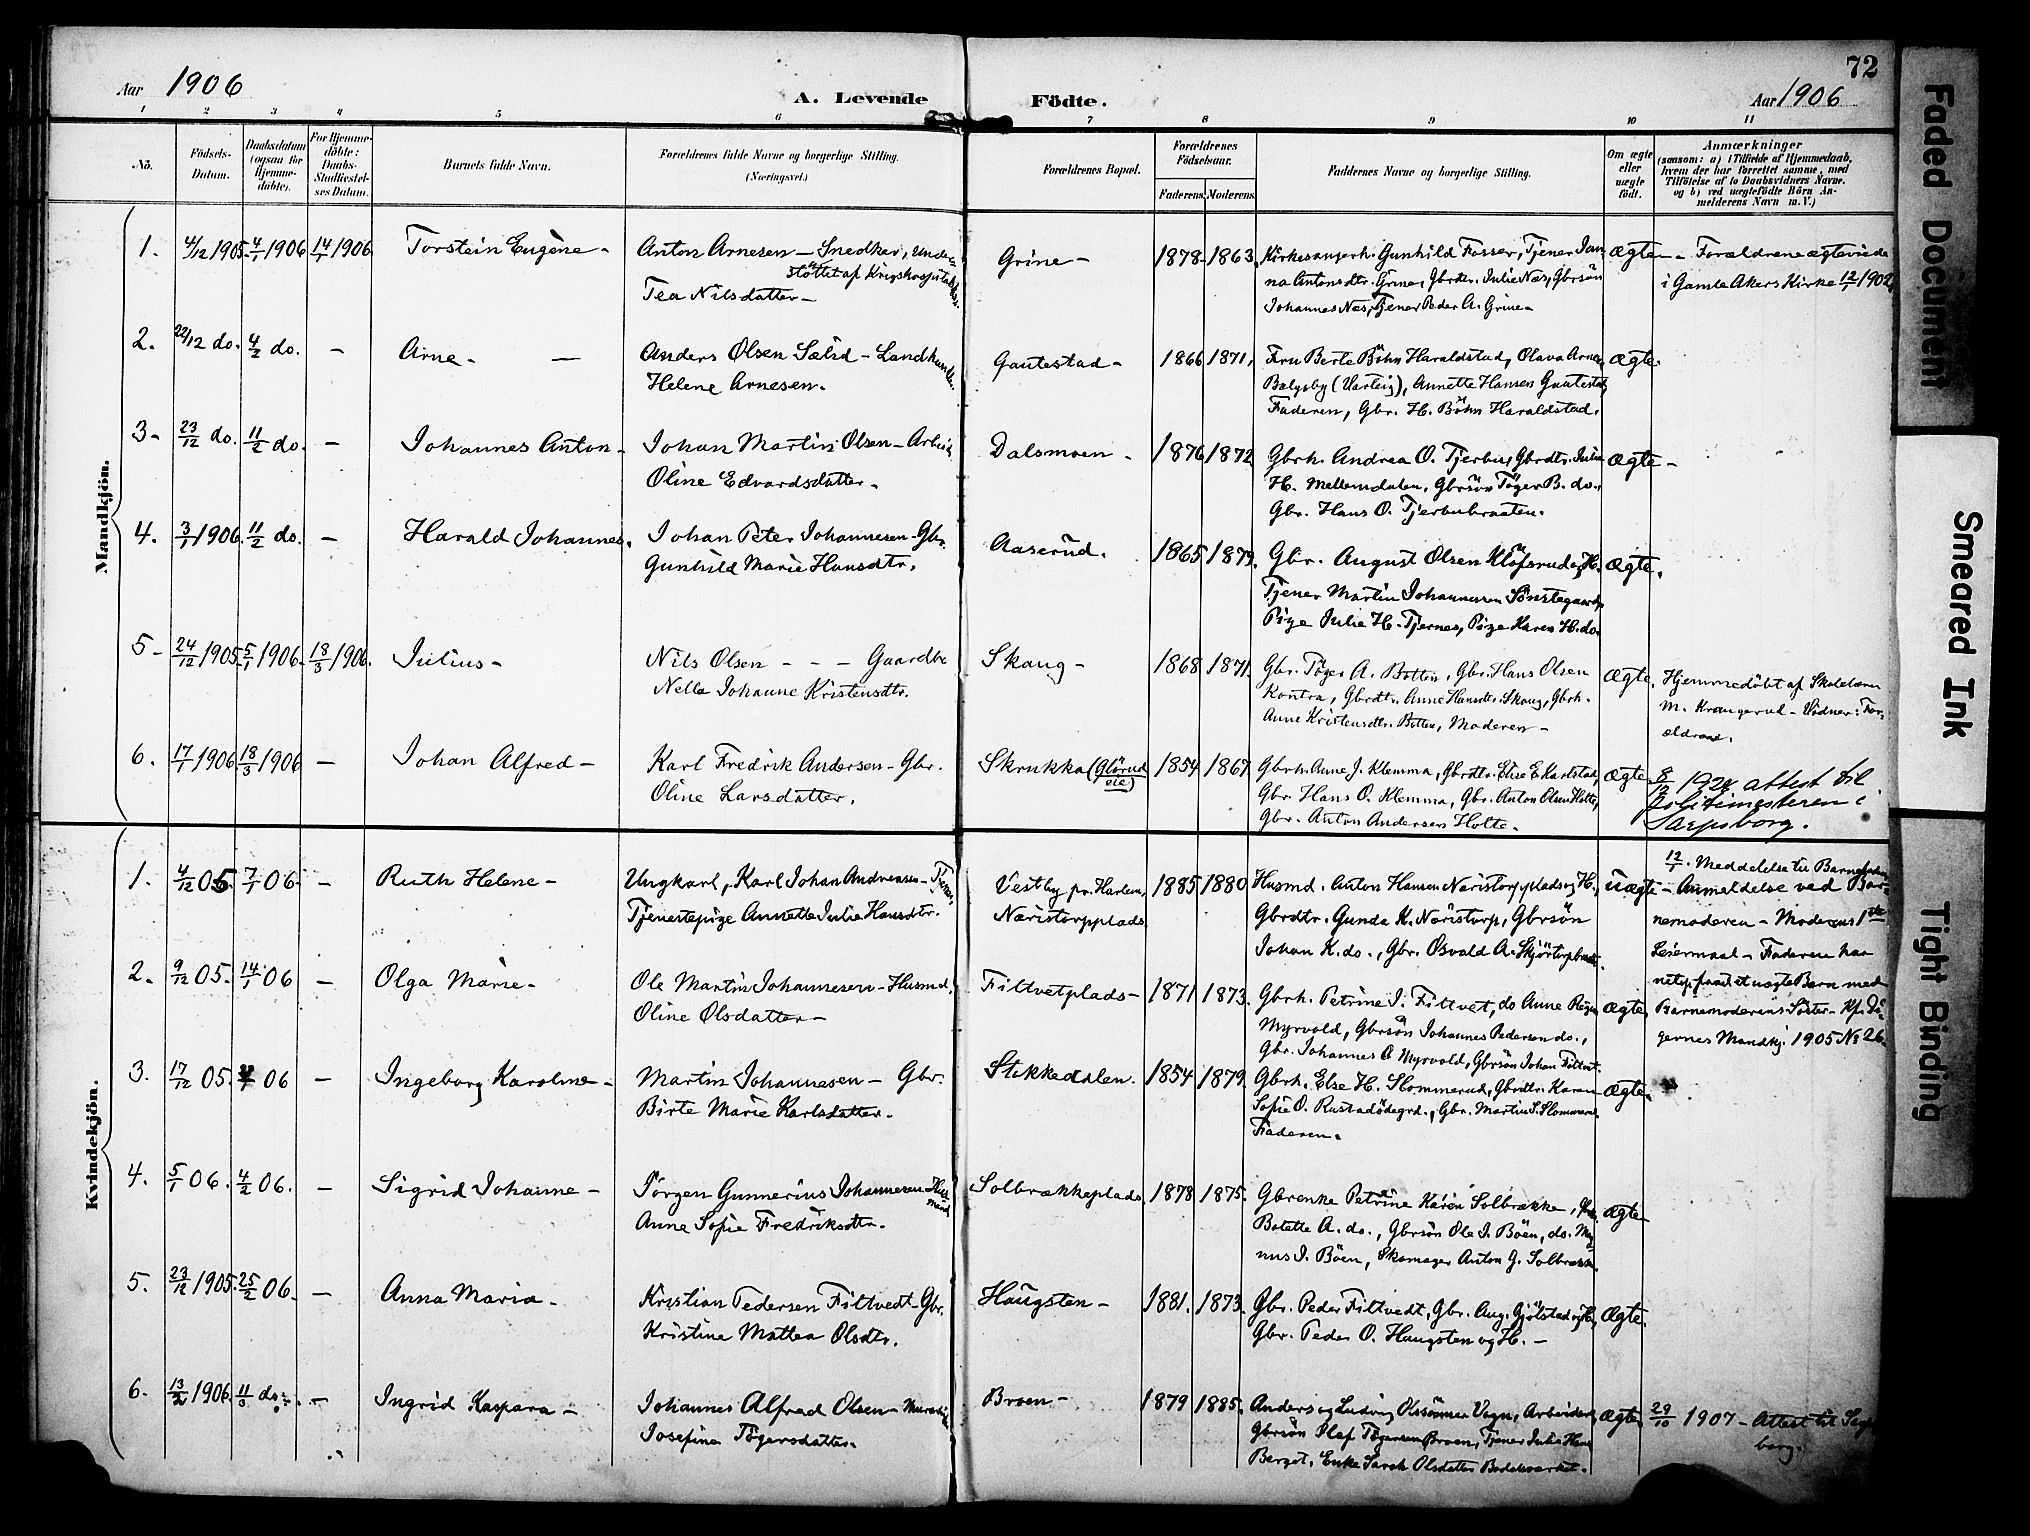 Aar 1906
A. Levende Födte.
72
Aar 1906
1 2 3 4 5 6 7 8 9 10 11
No.
Födsels-Datum.
Daabsdatum (ogsaa for Hjemme-döbte).
For Hjemme-döbte: Daabs-Stadfæstel-ses Datum.
Barnets fulde Navn.
Forældrenes fulde Navne og borgerlige Stilling. (Næringsvei.)
Forældrenes Bopæl.
Forældrenes Födselsaar.
Faderens. Moderens.
Faddernes Navne og borgerlige Stilling.
Om ægte eller uægte födt.
Anmærkninger
(saasom: a) i Tilfælde af Hjemmedaab,
hvem der har forrettet samme, med
Tilföielse af to Daabsvidners Navne.
og b) ved uægtefödte Börn An-
melderens Navn m. V.)
Mandkjön.
1. 4/12 1905 4/1 1906 14/1 1906 Torstein Eugène -
Anton Arnesen - Snedker, under-
støttet af Krigshospitalet
Tea Nilsdatter -
Grine - 1878 - 1863
Kirkesangerh. Gunhild Fosser, Tjener Jan-
na Antonsdtr. Grine, Gbrdtr. Julie Næs, Gbrsön
Johannes Næs, Tjener Peder A. Grine -
ægte - Forældrene ægteviede
i Gamle Akers Kirke 12/1 1902
2. 22/12 do. 4/2 do. - Arne - -
Anders Olsen Sælid - Landhandler
Helene Arnesen.
Gautestad - 1866 1871,
Fru Berte Böhn Haraldstad, Olava Arnes.
(Varteig), Annette Hansen Gautestad,
Faderen, Gbr. H. Böhn Haraldstad.
ægte.
3 - 23/12 do. 11/2 do. - Johannes Anton -
Johan Martin Olsen - Arbeid.
Oline Edvardsdatter -
Dalsmoen - 1876 1872
Gbrh. Andrea O. Tjerbu, Gbrdtr. Julie
H. Mellemdalen, Gbrsön Töger B. do.,
Gbr. Hans O. Tjerbubraaten.
ægte -
4. 3/1 1906. 11/2 do. - Harald Johannes.
Johan Peter Johannesen - Gbr.
Gunhild Marie Hansdtr.
Aaserud. 1865 1879.
Gbr. August Olsen Klöfsrud og H.
Tjener Martin Johannesen Sönstegaard,
Pige Julie H. Tjernes, Pige Karen H. do.
ægte.
5 - 24/12 1905 5/1 1906 - 18/3 1906. Julius -
Nils Olsen - - - Gaardbr
Nella Johanne Kristensdtr.
Skaug - 1868 1871.
Gbr. Töger A. Botten, Gbr. Hans Olsen
Kontra, Gbrdtr. Anne Hansdtr. Skaug, Gbrh.
Anne Kristensdtr. Botten, Moderen -
ægte. Hjemmedöbt af Skolelærer
M. Krangerud - Vidner: For-
ældrene.
6. 17/1 1906 18/3 1906 - Johan Alfred -
Karl Fredrik Andersen - Gbr.
Oline Larsdatter.
Skrukka (Glörud eie) 1854 1867
Gbrh. Anne J. Klemma, Gbrdtr. Elise E. Karlstad,
Gbr. Hans O. Klemma, Gbr. Anton Olsen Holte,
Gbr. Anton Andersen Holte.
ægte. 8/12 attest til
Politimesteren i
Sarpsborg.
Kvindekjön.
1. 4/12 05. 7/1 06. - Ruth Helene -
Ungkarl, Karl Johan Andreasen - Tjener,
Tjenestepige Annette Julie Hansdtr.
Vestby pr. Harlem, 1885 1880
Næristorpplads
Husmd. Anton Hansen Næristorpplads og H,
Gbrdtr. Gunda K. Næristorp, Gbrsön
Johan K. do., Gbr. Osvald A.
uægte - 12/1. Meddelelse til Barnefaderen
Anmeldelse ved Bar-
nemoderen - Moderens 1ste
Leiermaal - Faderen har
netop faaet et uægte Barn med
Barnemoderens Söster - Kfr. Dö-
gernes Mandkj. 1905 No 26.
2. 9/12 05. 14/1 06 - Olga Marie -
Ole Martin Johannesen - Husmd.
Oline Olsdatter -
Filtvetplads - 1871 1873.
Gbrh. Petrine J. Filtvet, do Anne
Myrvold, Gbrsön Johannes Pedersen do.,
Gbr. Johannes O Myrvold, Gbrsön Johan Filtvet.
ægte.
3. 17/12 05. 06 - Ingeborg Karoline -
Martin Johannesen - Gbr.
Birte Marie Karlsdatter.
Stikkedalen. 1854 1879.
Gbrh. Else H. Slommerud, Gbrdtr. Karen
Sofie O. Rustadödegrd., Gbr. Martin S.
Faderen.
ægte.
4. 5/1 06. 4/2 06. - Sigrid Johanne -
Jörgen Gunnerius Johannesen Hus-
mand
Anne Sofie Fredriksdtr.
Solbrækkeplads. 1878 1875.
Gbrenke Petrine Karen Solbrække,
Botette A. do., Gbrsön Ole J. Böen, do. Mag-
nus J. Böen, Skomager Anton G. Solbrække.
ægte
5. 23/12 1905. 25/2 06. - Anna Maria -
Kristian Pedersen Filtvedt - Gbr.
Kristine Mattea Olsdtr.
Haugsten - 1881. 1873.
Gbr. Peder Filtvedt, Gbr. Aug. Gjölstad og H,
Gbr. Peder O. Haugsten og H. -
ægte.
6. 13/2 1906. 11/3 do. - Ingrid Kaspara -
Johannes Alfred Olsen -
Josefine Tögersdatter.
Broen - 1879 1885.
Anders og Ludvig Olssönner Vagn, Arbeider,
Gbrsön Olaf Tögersen Broen, Tjener Julie
Berget, Enke Sarah Olsdatter
ægte. 29/10 1907 - Attest til Sarps-
borg.
Faded Document
Smeared Ink
Tight Binding